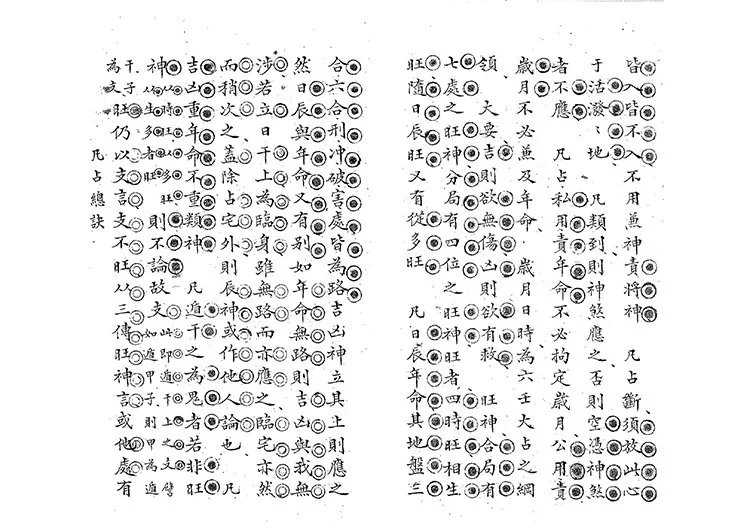 皆入皆不入不用兼神責將神　凡占斷須放此心
于活潑〻地　凡類到則神煞應之否則空憑神煞
者不應　凡占私用責年命不必拘定歲月公用責
歲月不必兼及年命　歲月日時為六壬大占之綱
領　大要吉則欲無傷凶則欲有救　旺神合局有
七處之旺神分局有四位之旺神旺者四時旺相生
旺隨日辰旺又有從多旺　凡日辰年命其地盤三
合六合刑冲破害處皆為路吉凶神立其上則應之
然日辰與年命又有别如年命無路則吉凶與我無
涉若立日干上為臨身雖無路而亦應之臨宅亦然
而稍次之蓋除占宅外則辰神或作他人論也　凡
吉凶重年命不重類神　凡遁干之為鬼者若非旺
神从時旺以多旺从生多者旺則不論故支此即遁干上之支譬如遁甲子則甲為遁
干子為支旺仍以支言支不旺从三傳旺神言或他處有
凡占總訣